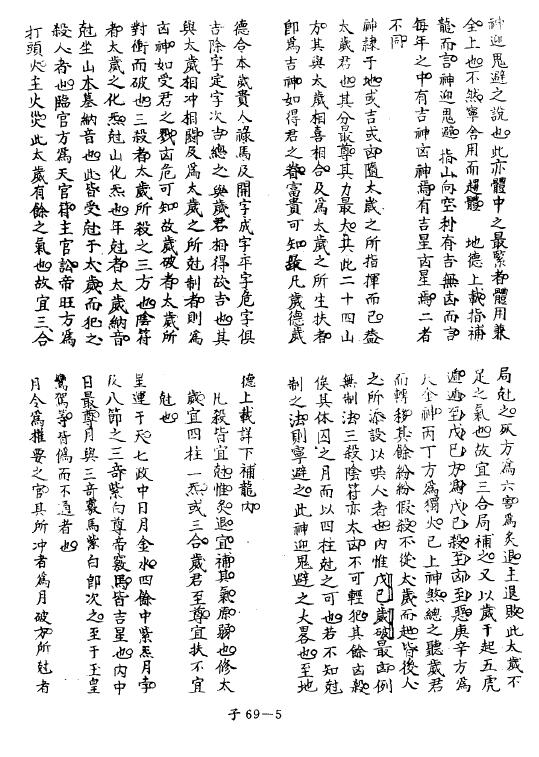 神迎鬼避之說也此亦體中之最緊者體用兼
全上也不然寧舍用而趨體　地德上載指補
龍而言神迎鬼避指山向空利有吉無凶而言
每年之中有吉神凶神焉有吉星凶星焉二者
不同
神隸于地或吉或凶隨太歲之所指揮而已葢
太歲君也其分最尊其力最大其此二十四山
方其與太歲相喜相合及爲太歲之所生扶者
即爲吉神如得君之眷富貴可知最凡歲德歲
德合本歲貴人祿馬及開字成字平字危字俱
吉除字定字次吉總之與歲君相得故吉也其
與太歲相冲相鬪及爲太歲之所尅制者則爲
凶神如受君之戮凶危可知故歲破者太歲所
對衝而破也三殺者太歲所殺之三方也陰符
者太歲之化炁尅山化炁也年尅者太歲納音
尅坐山本墓納音也此皆受尅于太歲而犯之
殺人者也臨官方爲天官符主官訟帝旺方爲
打頭火主火災此太歲有餘之氣也故宜三合
局尅之灰方爲六害爲炙退主退敗此太歲不
足之氣也故宜三合局補之又以歲干起五虎
遁遁至戊巳方爲戊巳殺至凶至惡庚辛方爲
天金神丙丁方爲獨火已上神煞總之聽歲君
而轉移其餘紛紛假殺不從太歲而起皆後人
之所添設以哄人者也內惟戊巳歲破最凶例
無制法三殺陰符亦太凶不可輕犯其餘凶殺
俟其休囚之月而以四柱尅之可也若不知尅
制之法則寧避之此神迎鬼避之大畧也至地
德上載詳下補龍內
凡殺皆宜尅惟炙退宜補其氣原弱也修太
歲宜四柱一炁或三合歲君至尊宜扶不宜
尅也
星運于天七政中日月金水四餘中紫炁月孛
及八節之三奇紫白尊帝竅馬皆吉星也內中
日最尊月與三奇竅馬紫白即次之至于玉皇
鸞駕等皆僞而不適者也
月令爲權要之官其所冲者爲月破方所尅者
子69—5